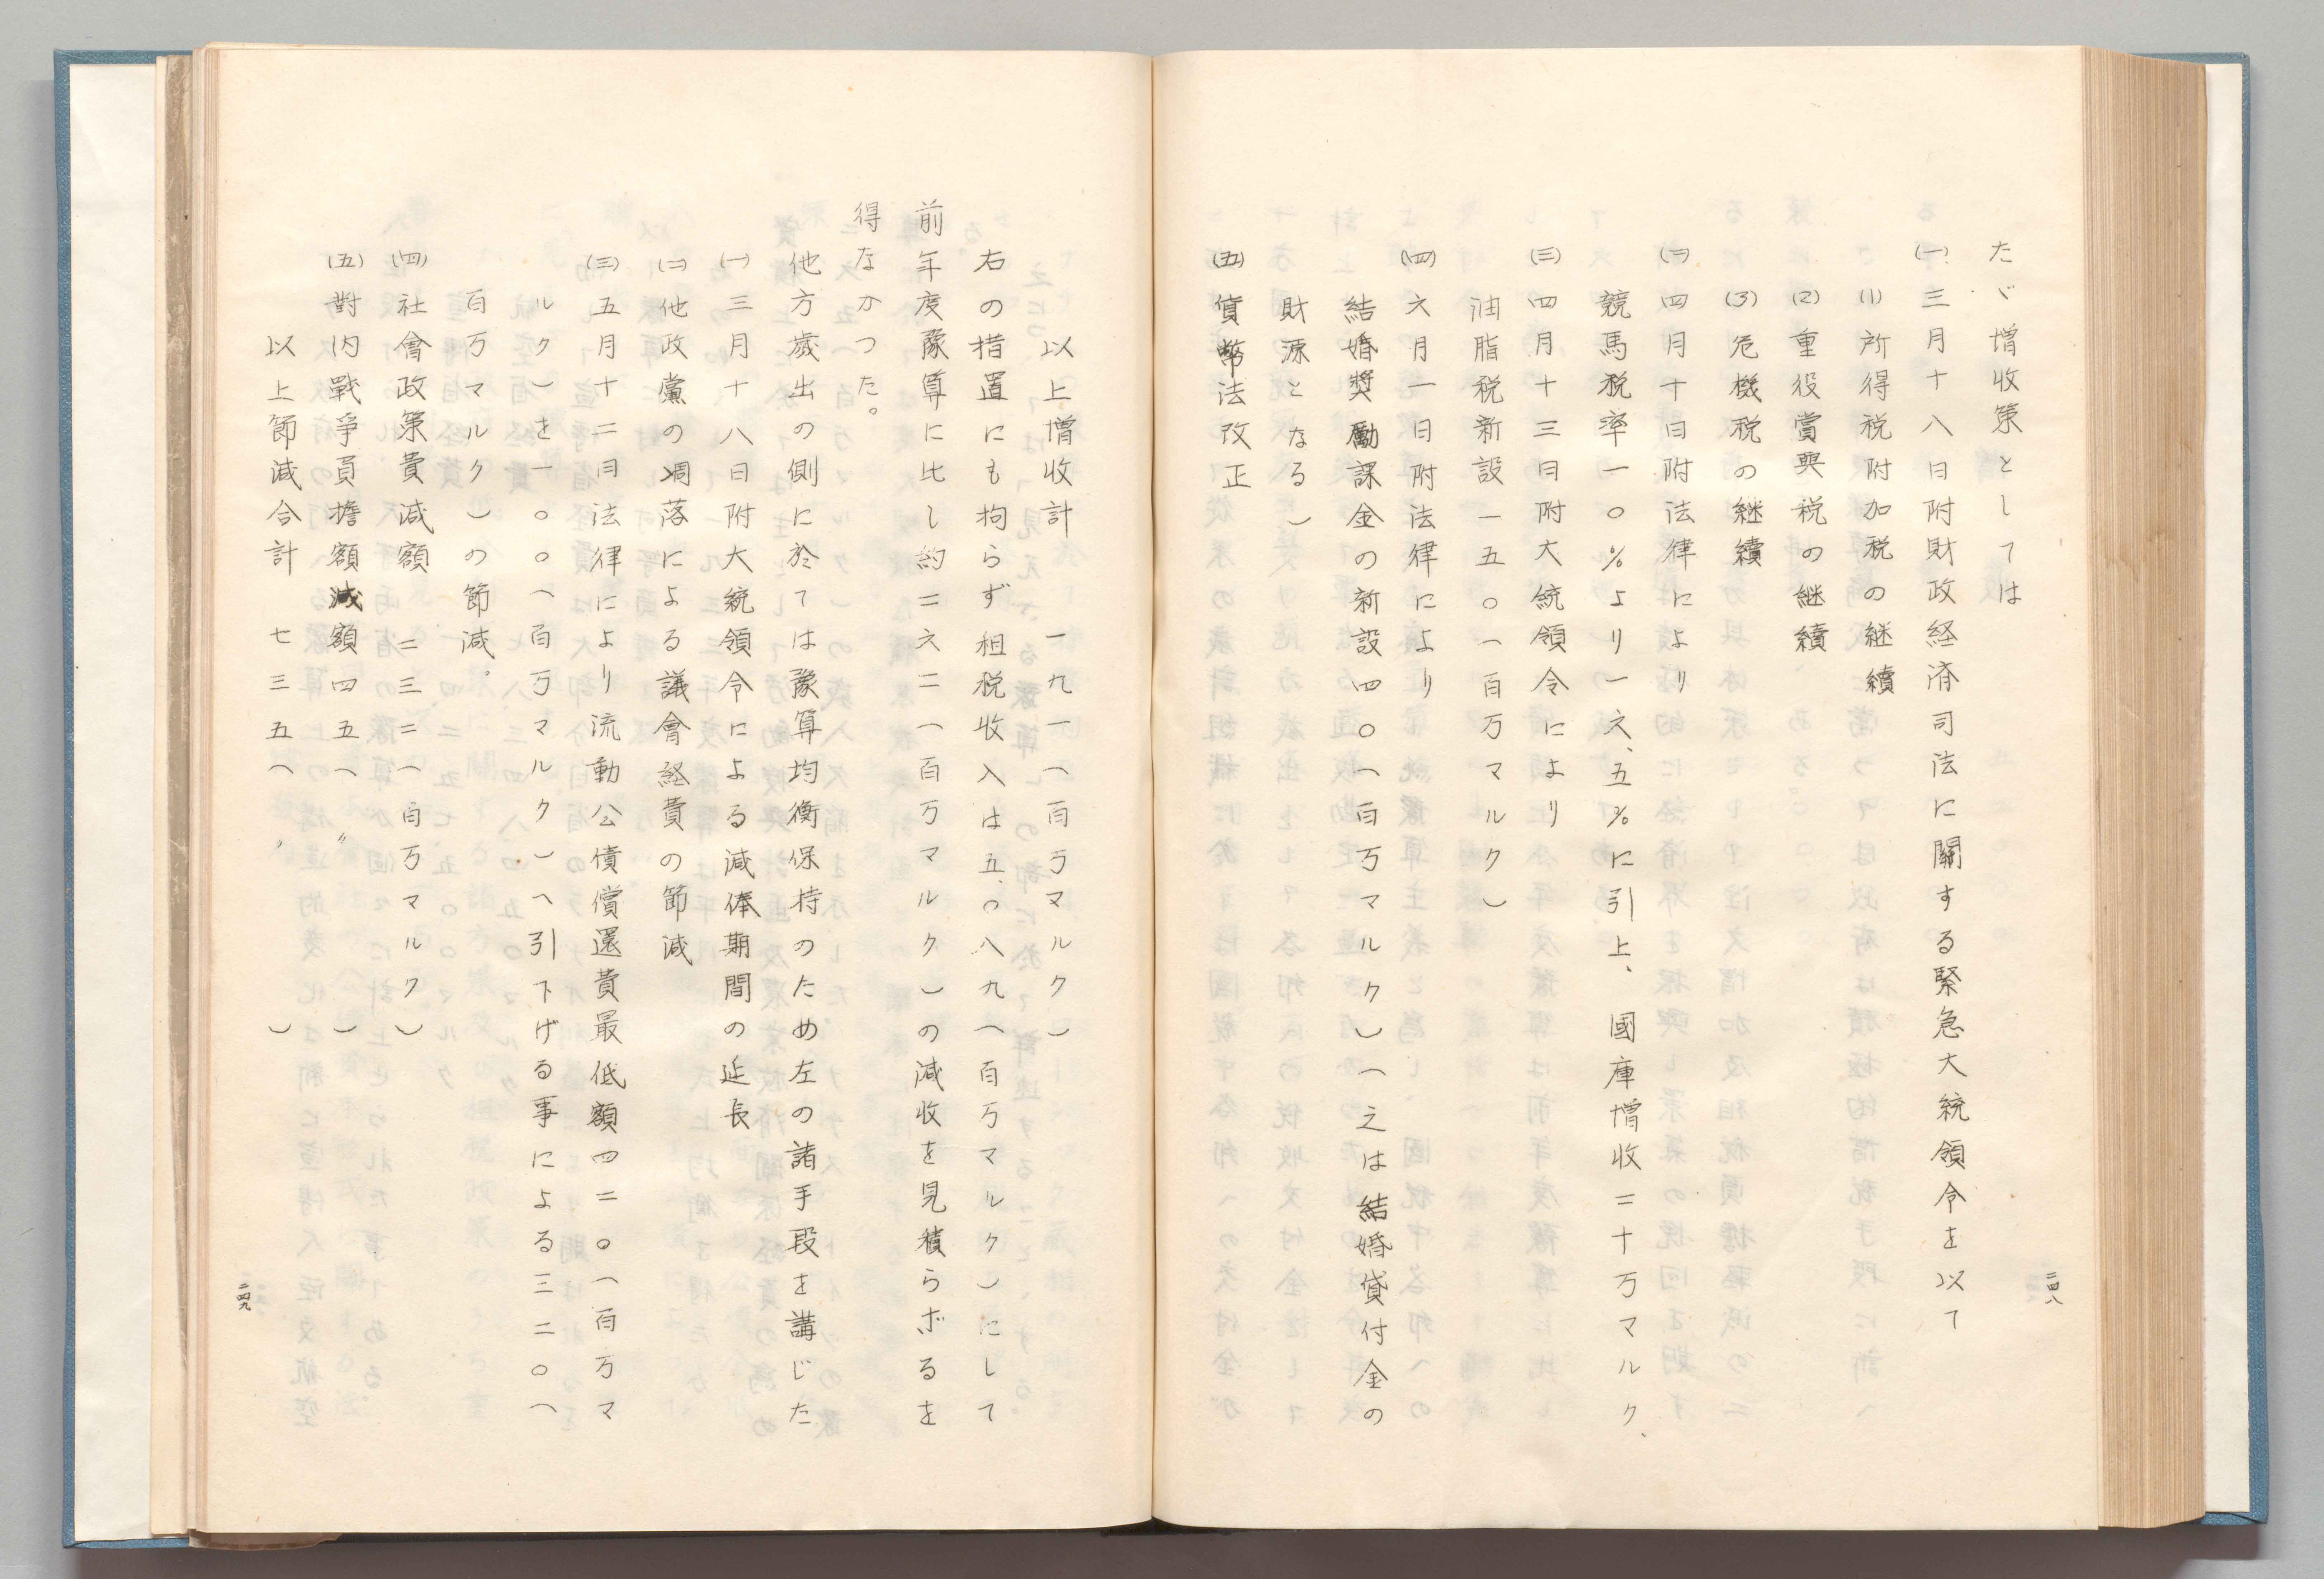 たゞ増收策としては
(一)三月十八日附財政経済司法に關する緊急大統領令を以て
(1)所得税附加税の継續
(2)重役賞與税の継續
(3)危機税の継續
(二)四月十日附法律により
競馬税率一〇%より一六、五%に引上、國庫増收二十万マルク、
(三)四月十三日附大統領令により
油脂税新設一五〇(百万マルク)
(四)六月一日附法律により
結婚奬勵課金の新設四〇(百万マルク)(之は結婚貸付金の
財源となる)
(五)貨幣法改正
二四八
以上増收計 一九一(百万マルク)
右の措置にも拘らず租税收入は五、〇八九(百万マルク)にして
前年度豫算に比し約二六二(百万マルク)の減收を見積らざるを
得なかつた。
他方歳出の側に於ては豫算均衡保持のため左の諸手段を講じた
(一)三月十八日附大統領令による減俸期間の延長
(二)他政黨の凋落による議會経費の節減
(三)五月十二日法律により流動公債償還費最低額四二〇(百万マ
ルク)を一〇〇(百万マルク)へ引下げる事による三二〇(
百万マルク)の節減。
(四)社會政策費減額 二三二(百万マルク)
(五)對内戰爭負擔額減額四五(〃)
以上節減合計 七三五(〃)
二四九